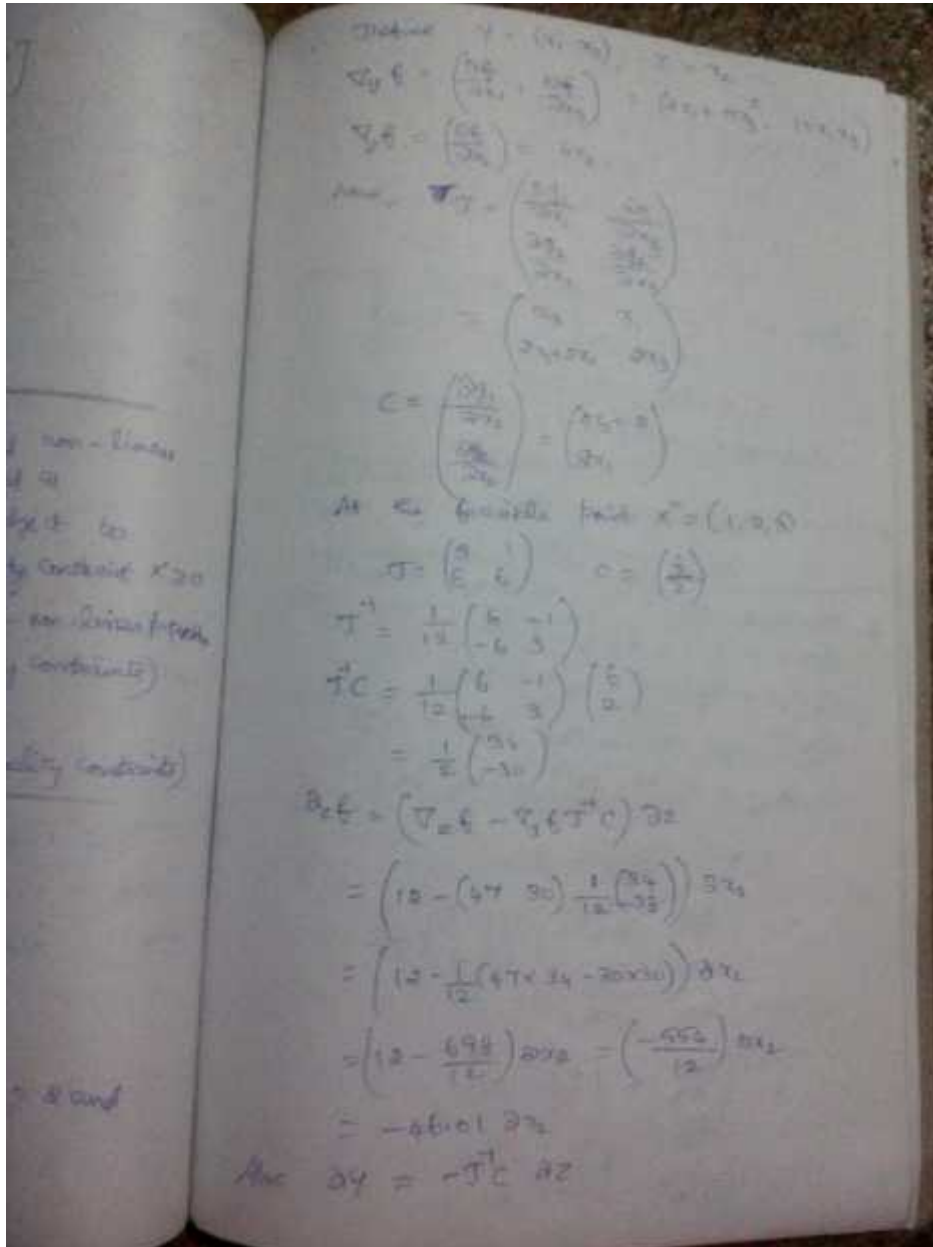 J
y non-linear
ject to
ty constraint x ≥ 0
non-linear
y constraints)
ality constraints)
2 and
Define Y = (x₁ x₃), Z = x₂
∇y f = (∂f/∂x₁, ∂f/∂x₃) = (2x₁ + 5x₃², 10x₁x₃)
∇z f = (∂f/∂x₂) = 6x₂
J = (∂g₁/∂x₁ ∂g₁/∂x₃
∂g₂/∂x₁ ∂g₂/∂x₃)
= (x₃ x₁
2x₁+2x₂ 2x₃)
C = (∂g₁/∂x₂
∂g₂/∂x₂) = (2x₂+2
2x₁)
At the feasible point x⁰ = (1, 2, 3)
J = (3 1
6 6) C = (6
2)
J⁻¹ = 1/12 (6 -1
-6 3)
J⁻¹C = 1/12 (6 -1
-6 3) (6
2)
= 1/12 (34
-30)
∂c f = (∇z f - ∇y f J⁻¹C) ∂z
= (12 - (47 30) 1/12 (34
-30)) ∂x₂
= (12 - 1/12 (47×34 - 30×30)) ∂x₂
= (12 - 698/12) ∂x₂ = (-554/12) ∂x₂
= -46.01 ∂x₂
∂Y = -J⁻¹C ∂Z